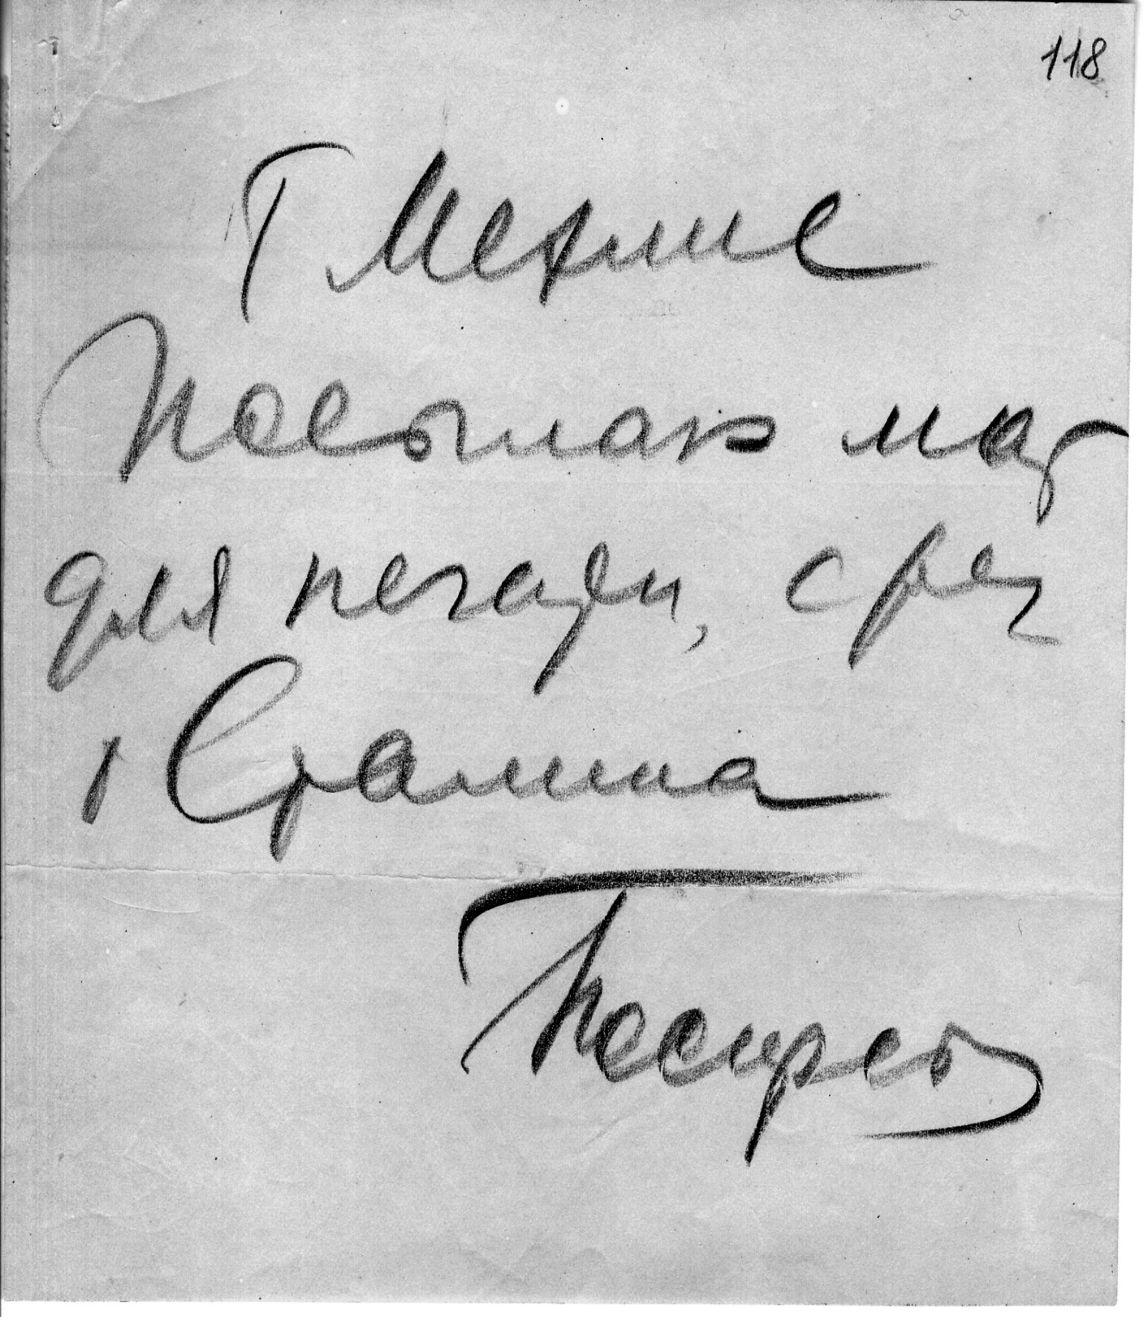 118
Т Мехлис
Посылаю мат
для печати, с
т Сталина
Поскреб